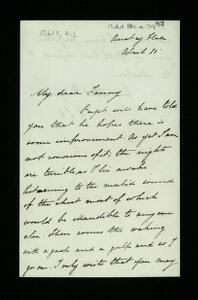 ELLIS, R. L.
Anstey Hall
April 11
My dear Fanny
Paget will have told
you that he hopes there is
some improvement. As yet I am
not conscious of it; the nights
are terrible as I lie awake
listening to the morbid sounds
of the chest most of which
would be inaudible to any one
else. Then comes the waking
with a gasp and a gulp and so I
go on. I only write that you may